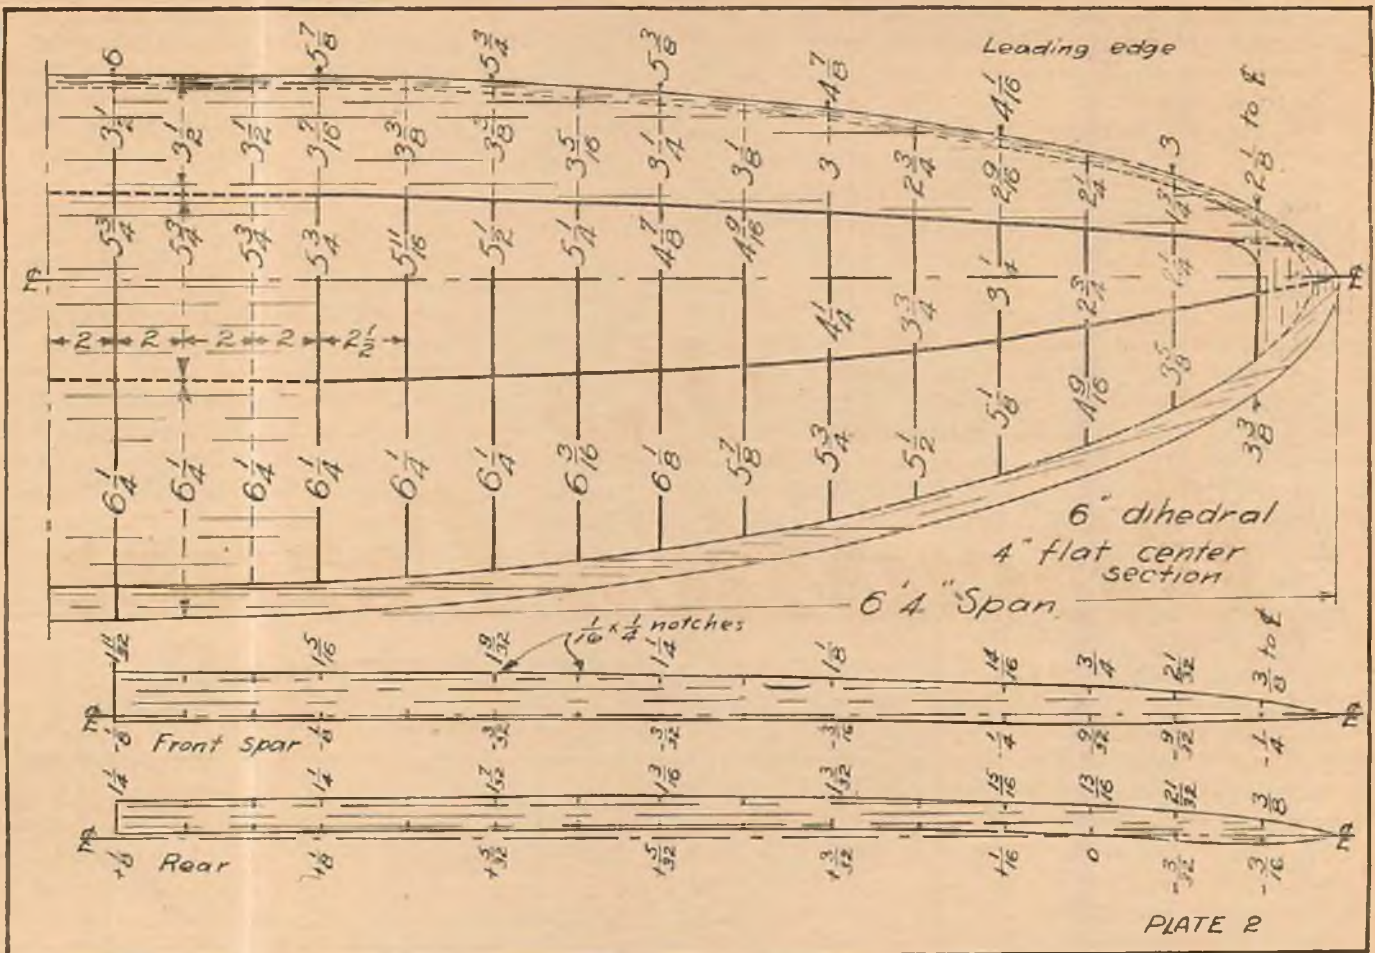 Leading edge
6 5 7/8 5 3/4 5 3/8 4 7/8 4 1/16 3 2 1/8 to ℄
3 1/2 3 1/2 3 1/2 3 7/16 3 3/8 3 3/8 3 5/16 3 1/4 3 1/8 3 2 3/4 2 9/16 2 1/4 1 3/4
5 3/4 5 3/4 5 3/4 5 3/4 5 11/16 5 1/2 5 1/4 4 7/8 4 9/16 4 1/4 3 3/4 3 1/4 2 3/4
2 2 2 2 2 1/2
6 1/4 6 1/4 6 1/4 6 1/4 6 1/4 6 1/4 6 3/16 6 1/8 5 7/8 5 3/4 5 1/2 5 1/8 4 9/16 3 5/8 3 3/8
6" dihedral
4" flat center
section
6'4" Span
1/16 x 1/4 notches
1 11/32 1 5/16 1 9/32 1 1/4 1 1/8 14/16 3/4 21/32 3/8 to ℄
Front spar
-1/8 -1/8 -3/32 -3/32 -3/16 -1/4 -9/32 -9/32 -1/4
1 1/4 1 1/4 1 7/32 1 3/16 1 3/32 15/16 13/16 21/32 3/8
Rear
+1/8 +1/8 +5/32 +5/32 +3/32 +1/16 0 -3/32 -3/16
PLATE 2